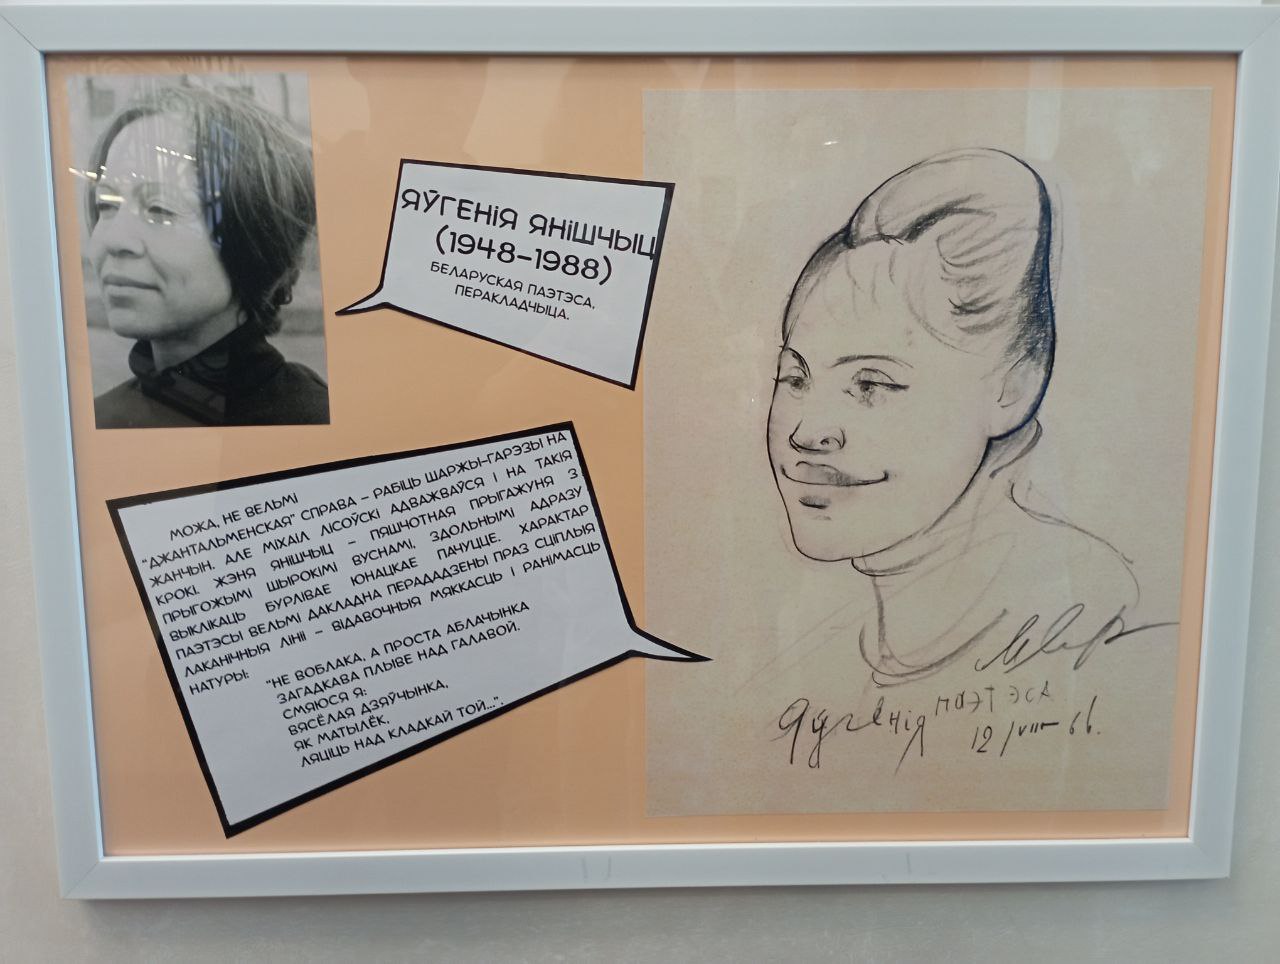 ЯЎГЕНІЯ ЯНІШЧЫЦ
(1948-1988)
БЕЛАРУСКАЯ ПАЭТЭСА,
ПЕРАКЛАДЧЫЦА.
МОЖА, НЕ ВЕЛЬМІ
"ДЖАНТАЛЬМЕНСКАЯ" СПРАВА – РАБІЦЬ ШАРЖЫ-ГАРЭЗЫ НА
ЖАНЧЫН. АЛЕ МІХАІЛ ЛІСОЎСКІ АДВАЖВАЎСЯ І НА ТАКІЯ
КРОКІ. ЖЭНЯ ЯНІШЧЫЦ – ПЯШЧОТНАЯ ПРЫГАЖУНЯ З
ПРЫГОЖЫМІ ШЫРОКІМІ ВУСНАМІ, ЗДОЛЬНЫМІ АДРАЗУ
ВЫКЛІКАЦЬ БУРЛІВАЕ ЮНАЦКАЕ ПАЧУЦЦЕ. ХАРАКТАР
ПАЭТЭСЫ ВЕЛЬМІ ДАКЛАДНА ПЕРАДАДЗЕНЫ ПРАЗ СЦІПЛЫЯ
ЛАКАНІЧНЫЯ ЛІНІІ – ВІДАВОЧНЫЯ МЯККАСЦЬ І РАНІМАСЦЬ
НАТУРЫ:
"НЕ ВОБЛАКА, А ПРОСТА АБЛАЧЫНКА
ЗАГАДКАВА ПЛЫВЕ НАД ГАЛАВОЙ.
СМЯЮСЯ Я:
ВЯСЁЛАЯ ДЗЯЎЧЫНКА,
ЯК МАТЫЛЁК,
ЛЯЦІЦЬ НАД КЛАДКАЙ ТОЙ...".
Яўгенія паэтэса
12/VIII 66.